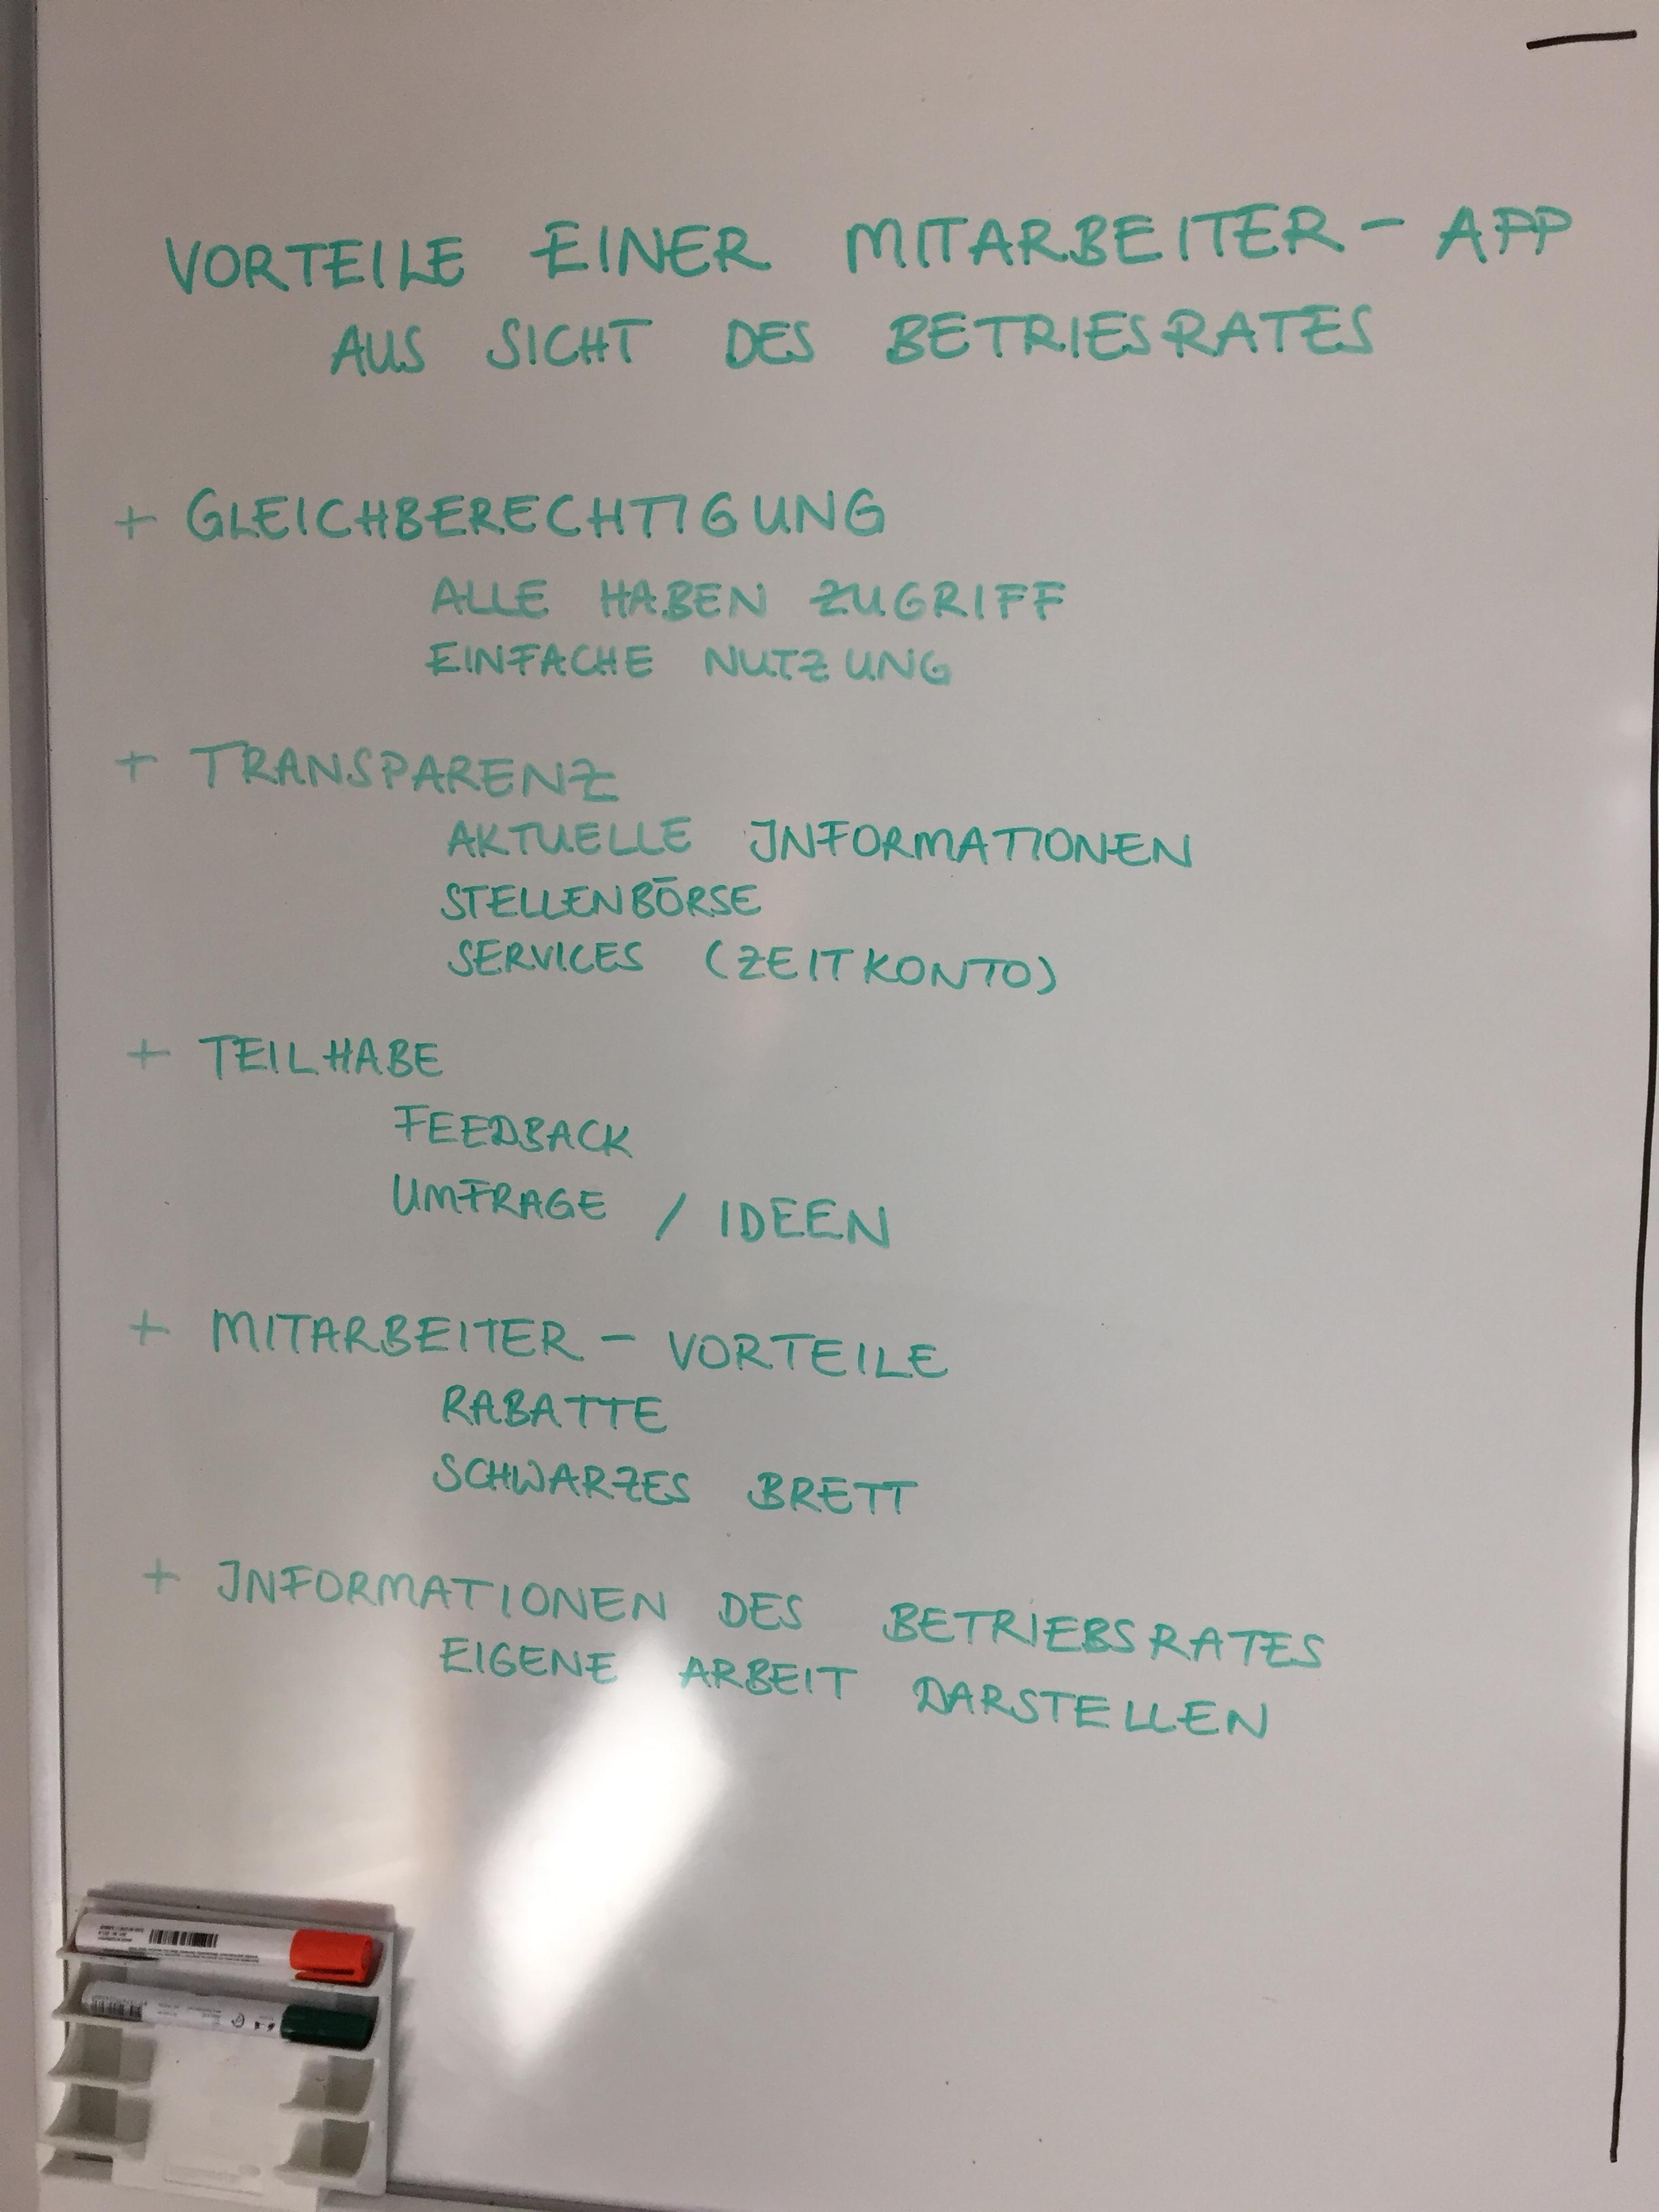 VORTEILE EINER MITARBEITER - APP
AUS SICHT DES BETRIESRATES
+ GLEICHBERECHTIGUNG
ALLE HABEN ZUGRIFF
EINFACHE NUTZUNG
+ TRANSPARENZ
AKTUELLE INFORMATIONEN
STELLENBÖRSE
SERVICES (ZEITKONTO)
+ TEILHABE
FEEDBACK
UMFRAGE / IDEEN
+ MITARBEITER - VORTEILE
RABATTE
SCHWARZES BRETT
+ INFORMATIONEN DES BETRIEBSRATES
EIGENE ARBEIT DARSTELLEN